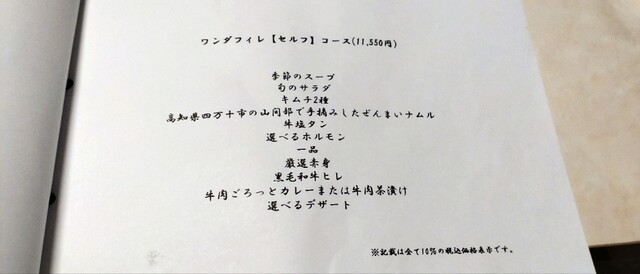 ワンダフィレ【セルフ】コース(11,550円)
季節のスープ
旬のサラダ
キムチ2種
高知県四万十市の山間部で手摘みしたぜんまいナムル
牛塩タン
選べるホルモン
一品
厳選赤身
黒毛和牛ヒレ
牛肉ごろっとカレーまたは牛肉茶漬け
選べるデザート
※記載は全て10%の税込価格表示です。